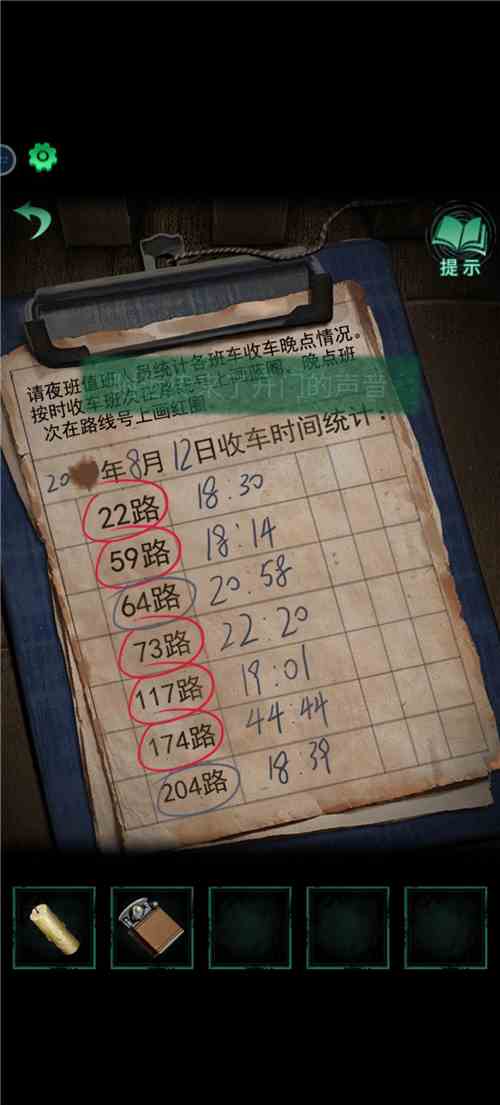 提示
请夜班值班人员统计各班车收车晚点情况。
按时收车班次让路线号上画蓝圈、晚点班
次在路线号上画红圈
的声音
年8月12日收车时间统计：
22路 18:30
59路 18:14
64路 20:58
73路 22:20
117路 19:01
174路 44:44
204路 18:39